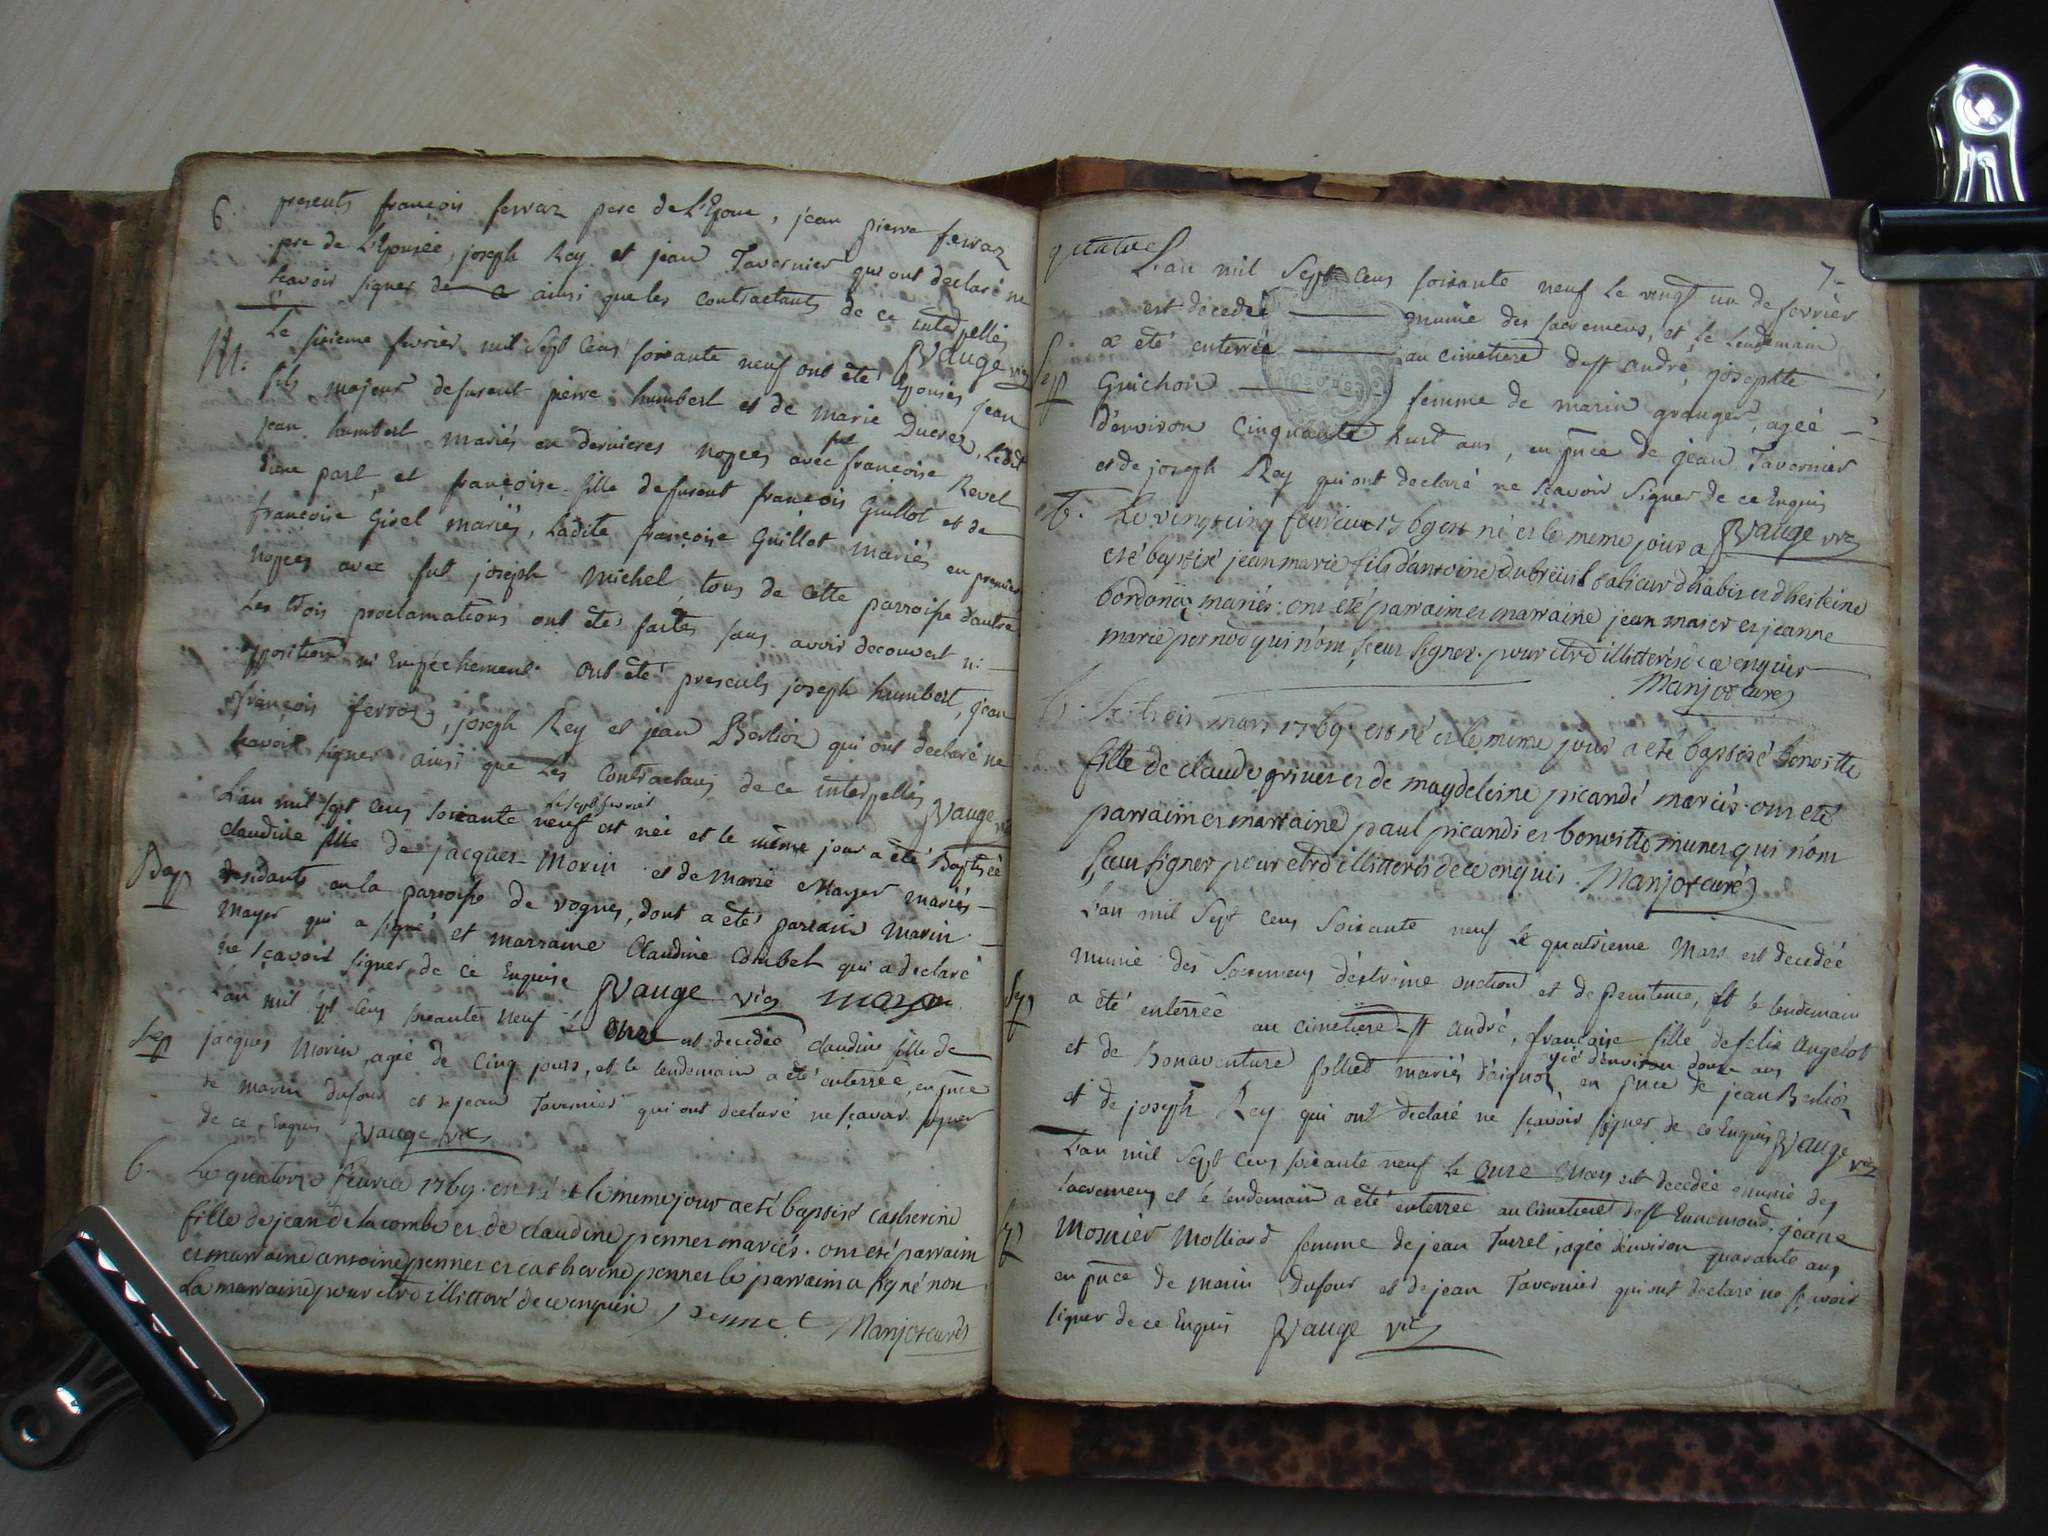 6. presents françois ferraz pere de L'Epoux, jean pierre ferraz
pere de L'Epousée, joseph Rey et jean Tavernier qui ont declaré ne
scavoir signer de ce ainsi que les contractants de ce interpellés
JVauge vic
M. Le sixieme fevrier mil sept cens soixante neuf ont été Epousés jean
fils majeur defunt pierre humbert et de marie Ducrez, Ledit
jean humbert mariés en dernieres nopces avec fut françoise Revel
d'une part, et françoise fille defunt françois Guillot et de
francoise Gisel mariés, Ladite françoise Guillot mariés en premieres
nopces avec fut joseph Michel, tous de cette parroisse d'autre
Les trois proclamations ont étés faites sans avoir decouvert ni
opposition ni Empéchement ont été presents joseph humbert, jean
françois ferroz, joseph Rey et jean Berlioz qui ont declaré ne
scavoir signer ainsi que Les contractans de ce interpellés
JVauge vic
le sept fevrier
L'an mil sept cens soixante neuf est née et le même jour a été Baptisée
claudine fille de jacques Morin et de Marie Mayer mariés
Bap residants en la parroisse de vognes, dont a été parrain Marin
Mayer qui a signé et marraine Claudine Combet qui a declaré
ne sçavoir signer de ce Enquise JVauge vic mayer
L'an mil sept cens soixante neuf le onze est decedée claudine fille de
Sep jacques Morin, agée de cinq jours, et le lendemain a été enterrée, en pnce
de marin dufour et de jean Tavernier qui ont declaré ne sçavoir signer
de ce Enquis JVauge vic
b. Le quatorze fevrier 1769. est né et le meme jour a eté baptisé catherine
fille de jean delacombe et de claudine pennet mariés. ont eté parrain
et marraine antoine pennet et catherine pennet le parrain a signé non
La marraine pour etre illitteré de ce enquise pennet Manjot curé
quatre 7
L'an mil sept cens soixante neuf Le vingt un de fevrier
est decedée munie des sacremens, et Le Lendemain
a été enterrée au cimetiere de st andré, josephte
Sep Guichon femme de marin granger, agée
d'environ cinquante huit ans, en pnce de jean Tavernier
et de joseph Rey qui ont declaré ne sçavoir signer de ce Enquis
JVauge vic
B. Le vingt cinq fevrier 1769 est né et le meme jour a
eté baptisé jean marie fils d'antoine dubreüil tailieur d'habits et d'hesteine
bordonoz mariés. ont eté parrain et marraine jean maier et jeanne
marie pernod qui n'ont sceu signer pour etre illitterés de ce enquis
Manjot curé
b. Le trois mars 1769. est né et le meme jour a eté baptisé benoitte
fille de claude grinet et de magdeleine picandé mariés. ont eté
parraim et marraine paul picandi et benoitte munet qui n'ont
sceu signer pour etre illitterés de ce enquis. Manjot curé
L'an mil sept cens soixante neuf Le quatrieme Mars est decedée
munie des sacremens d'extrême onction et de penitence, et le lendemain
Sep a été enterrée au cimetiere st andré, francoise fille de felix angelot
agée d'environ douze ans
et de Bonaventure follied mariés d'aignoz en pnce de jean Berlioz
et de joseph Rey qui ont declaré ne sçavoir signer de ce Enquis JVauge vic
L'an mil sept cens soixante neuf le onze Mars est decedée munie des
sacremens et le lendemain a été enterrée au cimetiere de st Ennemond. jeane
Sep Mosnier Molliard femme de jean Turrel, agée d'environ quarante ans
en pnce de marin dufour et de jean Tavernier qui ont declaré ne sçavoir
signer de ce Enquis JVauge vic